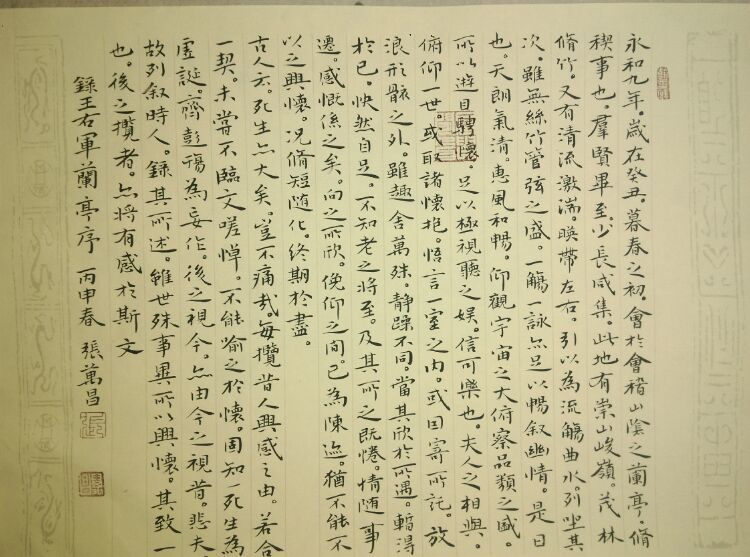 永和九年。歲在癸丑。暮春之初。會於會稽山陰之蘭亭。脩
禊事也。羣賢畢至。少長咸集。此地有崇山峻嶺。茂林
脩竹。又有清流激湍。暎帶左右。引以為流觴曲水。列坐其
次。雖無絲竹管弦之盛。一觴一詠亦足以暢叙幽情。是日
也。天朗氣清。惠風和暢。仰觀宇宙之大俯察品類之盛。
所以遊目騁懷。足以極視聽之娛。信可樂也。夫人之相與。
俯仰一世。或取諸懷抱。悟言一室之內。或因寄所託。放
浪形骸之外。雖趣舍萬殊。靜躁不同。當其欣於所遇。得
於己。怏然自足。不知老之將至。及其所之既惓。情隨事
遷。感慨係之矣。向之所欣。俛仰之間。已為陳迹。猶不能不
以之興懷。况脩短隨化。終期於盡。
古人云。死生亦大矣。豈不痛哉。每攬昔人興感之由。若合
一契。未嘗不臨文嗟悼。不能喻之於懷。固知一死生為
虛誕。齊彭殤為妄作。後之視今。亦由今之視昔。悲夫
故列叙時人。錄其所述。雖世殊事異所以興懷。其致一
也。後之攬者。亦將有感於斯文
錄王右軍蘭亭序 丙申春 張萬昌